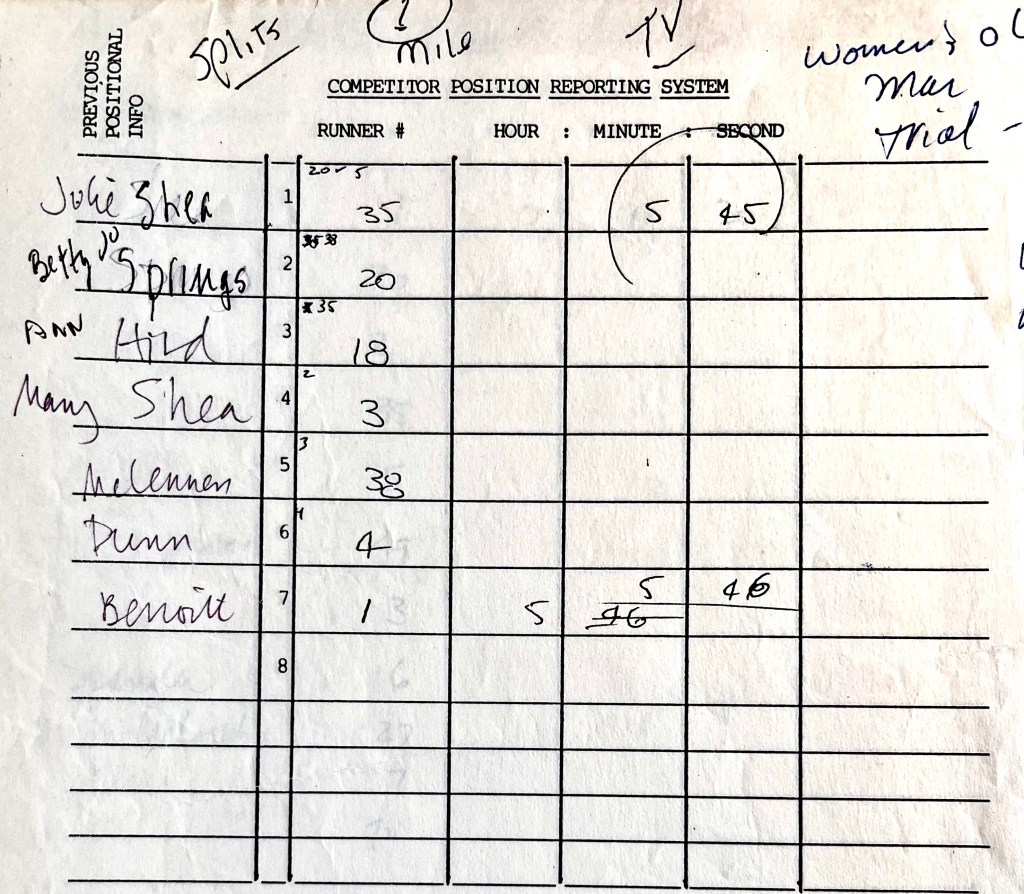 Splits 1 Mile TV Women's Ol
Mar
Trial -
PREVIOUS
POSITIONAL
INFO
COMPETITOR POSITION REPORTING SYSTEM
RUNNER # HOUR : MINUTE : SECOND
Julie Shea 1 35 5 45
Betty Jo Springs 2 38 20
Ann Hird 3 35 18
Mary Shea 4 2 3
McLennen 5 3 38
Dunn 6 4 4
Benoitt 7 1 5 46 5 46
8